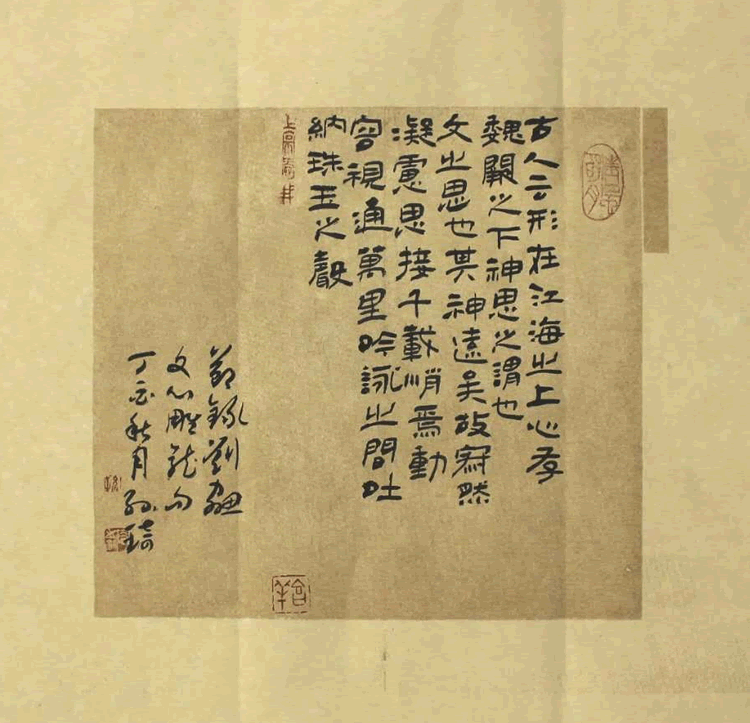 古人云形在江海之上心存
魏闕之下神思之謂也
文之思也其神遠矣故寂然
凝慮思接千載悄焉動
容視通萬里吟詠之間吐
納珠玉之聲
節錄劉勰
文心雕龍句
丁酉秋月孫琦